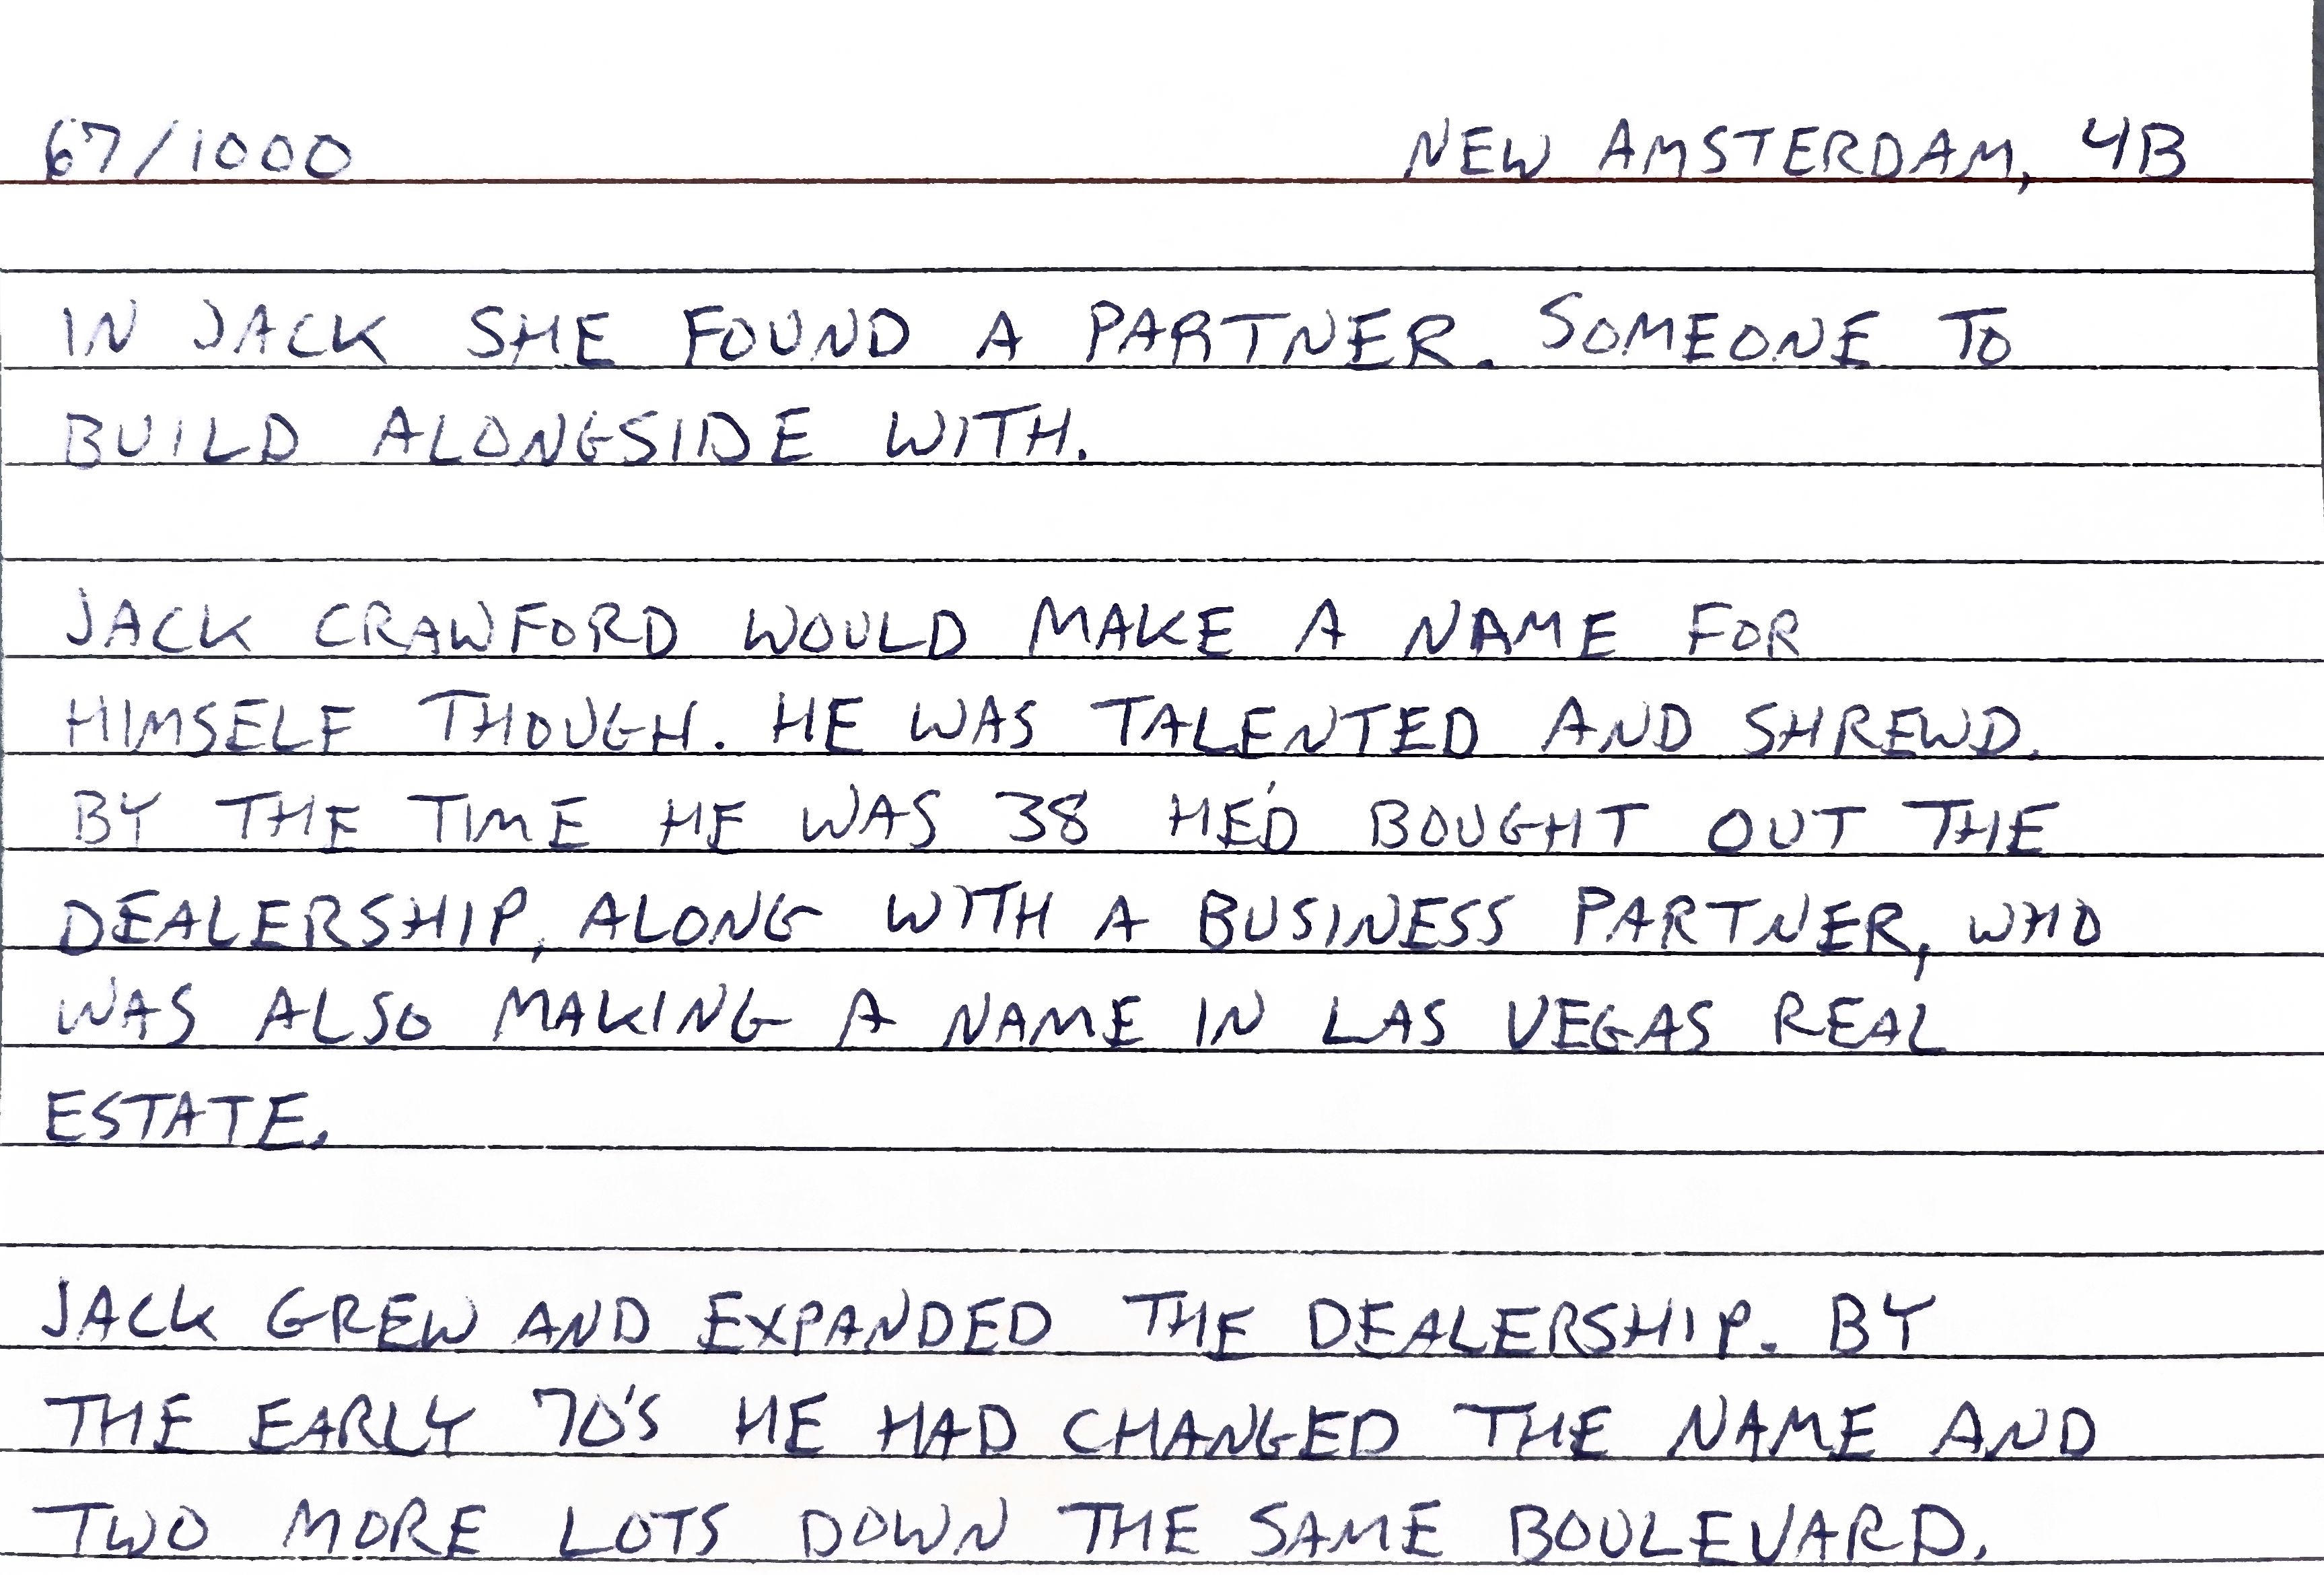 67/1000 NEW AMSTERDAM, 4B
IN JACK SHE FOUND A PARTNER. SOMEONE TO
BUILD ALONGSIDE WITH.
JACK CRAWFORD WOULD MAKE A NAME FOR
HIMSELF THOUGH. HE WAS TALENTED AND SHREWD.
BY THE TIME HE WAS 38 HE'D BOUGHT OUT THE
DEALERSHIP, ALONG WITH A BUSINESS PARTNER, WHO
WAS ALSO MAKING A NAME IN LAS VEGAS REAL
ESTATE.
JACK GREW AND EXPANDED THE DEALERSHIP. BY
THE EARLY 70'S HE HAD CHANGED THE NAME AND
TWO MORE LOTS DOWN THE SAME BOULEVARD.